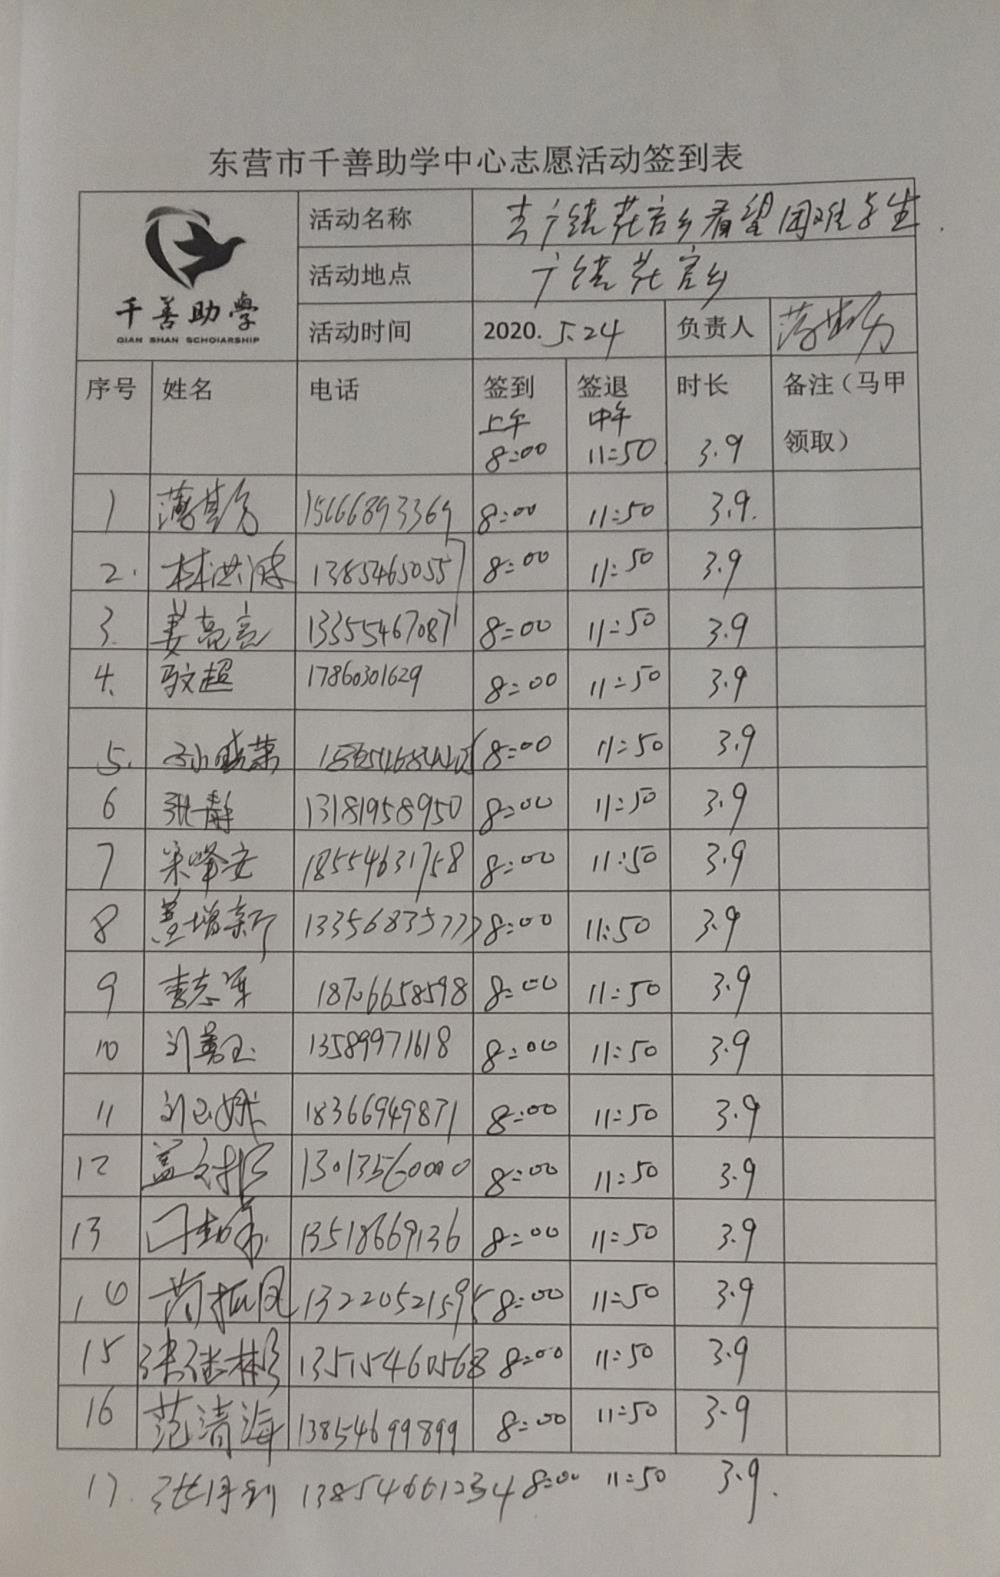 东营市千善助学中心志愿活动签到表
千善助學
QIAN SHAN SCHOIARSHIP
活动名称 去广饶花官乡看望困难学生
活动地点 广饶花官乡
活动时间 2020.5.24 负责人
序号 姓名 电话 签到 签退 时长 备注（马甲
上午 中午
8:00 11:50 3.9 领取）
1 15666893369 8:00 11:50 3.9.
2. 林洪波 13854650557 8:00 11:50 3.9
3. 姜亮亮 13355467087 8:00 11:50 3.9
4. 超 17860301629 8:00 11:50 3.9
5. 孙晓燕 8:00 11:50 3.9
6 张静 13181958950 8:00 11:50 3.9
7 宋峰安 18554631758 8:00 11:50 3.9
8 盖增新 13356835777 8:00 11:50 3.9
9 李志军 18706658598 8:00 11:50 3.9
10 刘曰玉 13589971618 8:00 11:50 3.9
11 刘 18366949871 8:00 11:50 3.9
12 盖 13013560000 8:00 11:50 3.9
13 13518669136 8:00 11:50 3.9
14 13220521595 8:00 11:50 3.9
15 13515460568 8:00 11:50 3.9
16 范清海 13854699899 8:00 11:50 3.9
17. 张 13854661234 8:00 11:50 3.9.